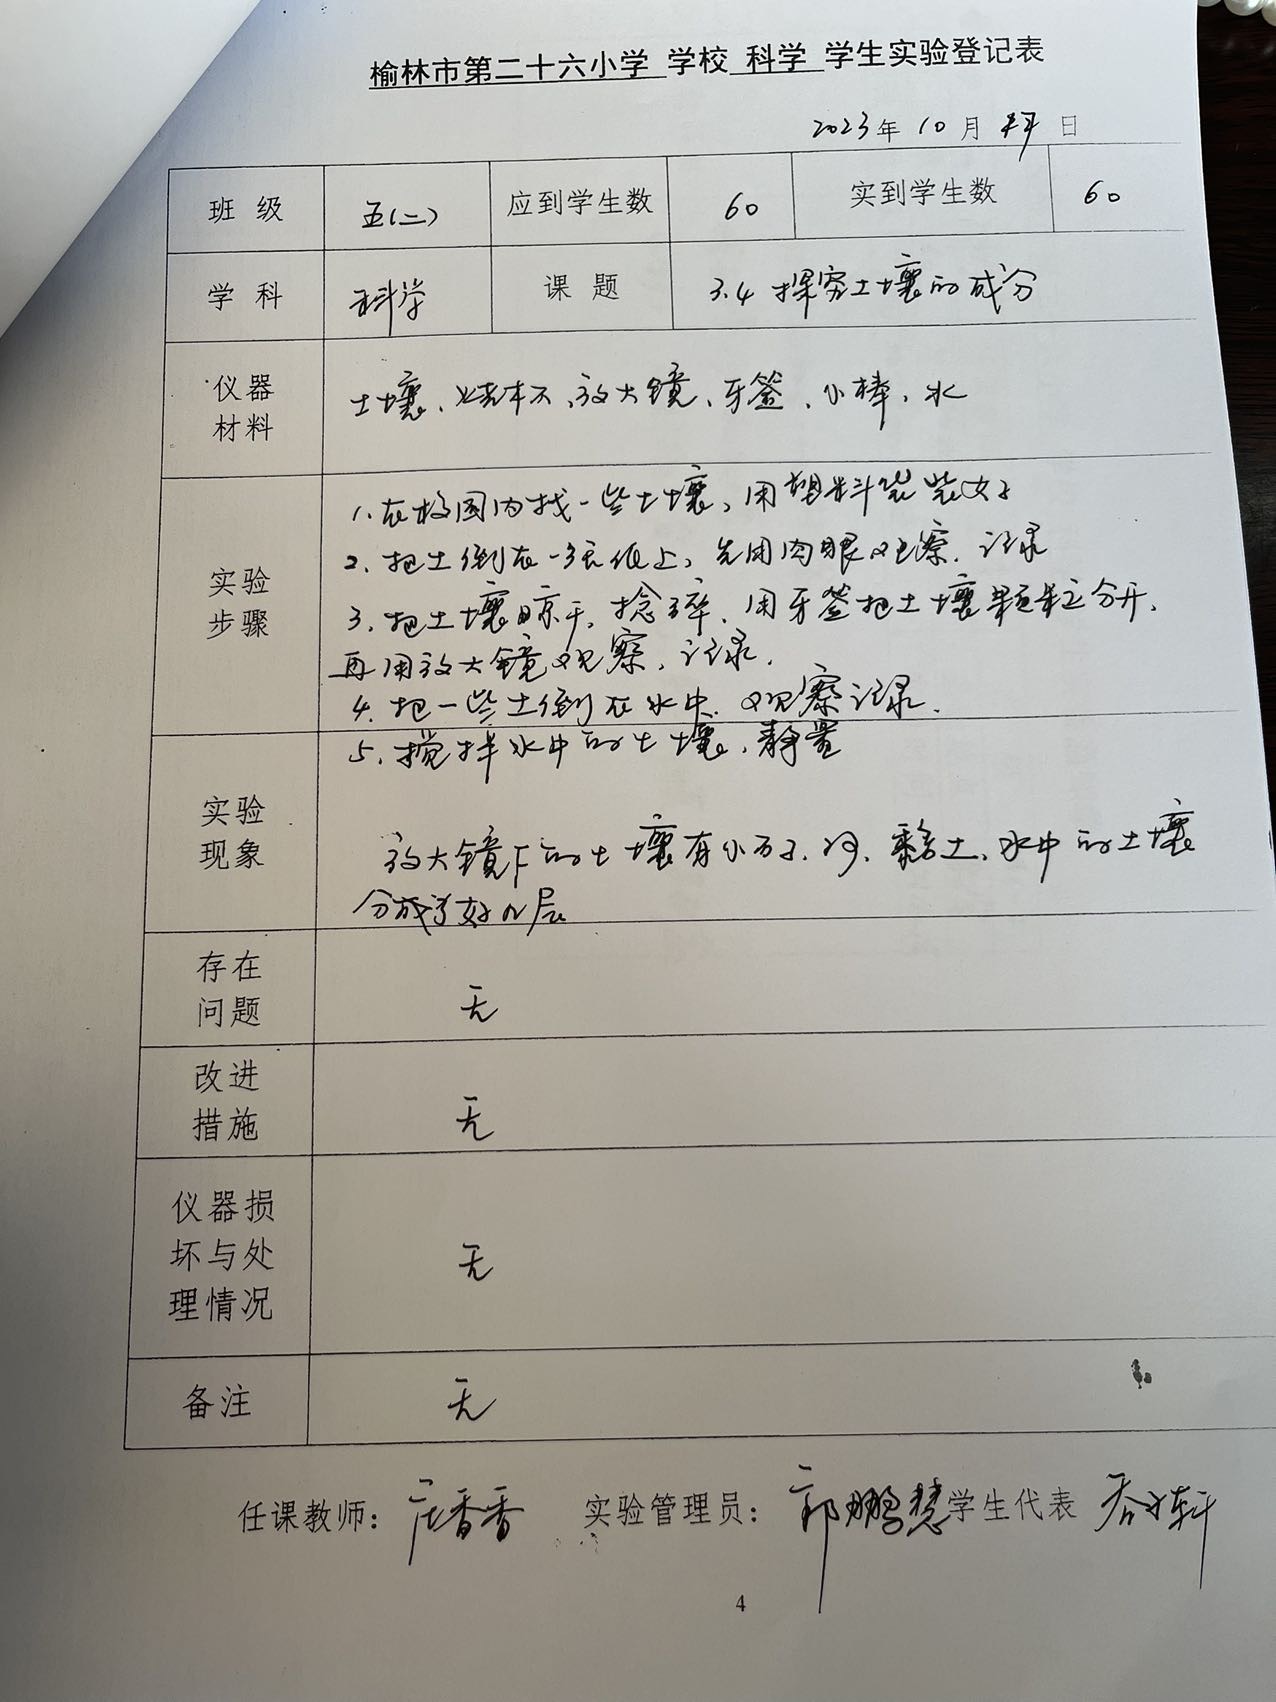 榆林市第二十六小学 学校 科学 学生实验登记表
2023年10月 日
班 级 五(二) 应到学生数 60 实到学生数 60
学 科 科学 课 题 3.4 探究土壤的成分
仪器
材料
土壤、烧杯、放大镜、牙签、小棒、水
实验
步骤
1.在校园内找一些土壤,用塑料袋装好
2.把土倒在一张纸上,先用肉眼观察、记录
3.把土壤晾干,捻碎,用牙签把土壤颗粒分开,
再用放大镜观察,记录.
4.把一些土倒在水中.观察记录.
5.搅拌水中的土壤,静置
实验
现象
放大镜下的土壤有小石子、沙、黏土、水中的土壤
分成了好几层
存在
问题
无
改进
措施
无
仪器损
坏与处
理情况
无
备注 无
任课教师: 香香 实验管理员: 郭鹏慧 学生代表 轩
4